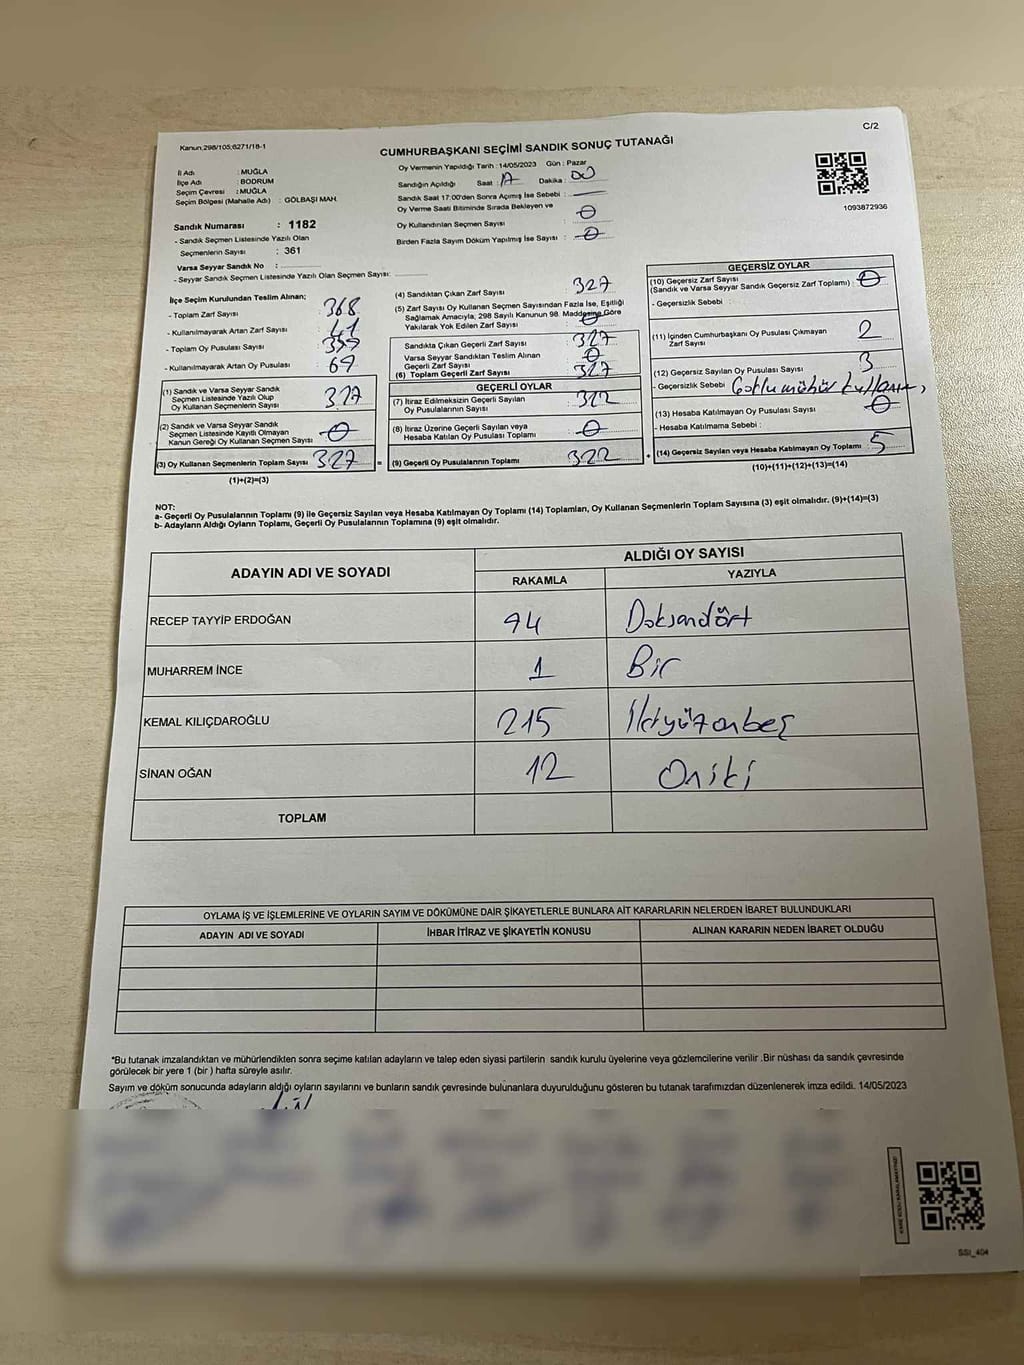 C/2
Kanun,298/105;6271/18-1
CUMHURBAŞKANI SEÇİMİ SANDIK SONUÇ TUTANAĞI
İl Adı : MUĞLA
İlçe Adı : BODRUM
Seçim Çevresi : MUĞLA
Seçim Bölgesi (Mahalle Adı) : GÖLBAŞI MAH.
Oy Vermenin Yapıldığı Tarih :14/05/2023 Gün : Pazar
Sandığın Açıldığı Saat : 17 Dakika : 00
Sandık Saat 17.00'den Sonra Açımış İse Sebebi :
Oy Verme Saati Bitiminde Sırada Bekleyen ve
Oy Kullandırılan Seçmen Sayısı : 0
Birden Fazla Sayım Döküm Yapılmış İse Sayısı : 0
1093872936
Sandık Numarası : 1182
- Sandık Seçmen Listesinde Yazılı Olan
Seçmenlerin Sayısı : 361
Varsa Seyyar Sandık No :
- Seyyar Sandık Seçmen Listesinde Yazılı Olan Seçmen Sayısı:
İlçe Seçim Kurulundan Teslim Alınan;
- Toplam Zarf Sayısı : 368
- Kullanılmayarak Artan Zarf Sayısı : 41
- Toplam Oy Pusulası Sayısı
- Kullanılmayarak Artan Oy Pusulası : 69
(1) Sandık ve Varsa Seyyar Sandık
Seçmen Listesinde Yazılı Olup
Oy Kullanan Seçmenlerin Sayısı 327
(2) Sandık ve Varsa Seyyar Sandık
Seçmen Listesinde Kayıtlı Olmayan
Kanun Gereği Oy Kullanan Seçmen Sayısı 0
(3) Oy Kullanan Seçmenlerin Toplam Sayısı 327 =
(1)+(2)=(3)
(4) Sandıktan Çıkan Zarf Sayısı : 327
(5) Zarf Sayısı Oy Kullanan Seçmen Sayısından Fazla İse, Eşitliği
Sağlamak Amacıyla, 298 Sayılı Kanunun 98. Maddesine Göre
Yakılarak Yok Edilen Zarf Sayısı : 0
Sandıkta Çıkan Geçerli Zarf Sayısı : 327
Varsa Seyyar Sandıktan Teslim Alınan
Geçerli Zarf Sayısı : 0
(6) Toplam Geçerli Zarf Sayısı : 327
GEÇERLİ OYLAR
(7) İtiraz Edilmeksizin Geçerli Sayılan
Oy Pusulalarının Sayısı : 322
(8) İtiraz Üzerine Geçerli Sayılan veya
Hesaba Katılan Oy Pusulası Toplamı : 0
(9) Geçerli Oy Pusulalarının Toplamı 322 +
GEÇERSİZ OYLAR
(10) Geçersiz Zarf Sayısı
(Sandık ve Varsa Seyyar Sandık Geçersiz Zarf Toplamı) : 0
- Geçersizlik Sebebi :
(11) İçinden Cumhurbaşkanı Oy Pusulası Çıkmayan
Zarf Sayısı : 2
(12) Geçersiz Sayılan Oy Pusulası Sayısı : 3
- Geçersizlik Sebebi
(13) Hesaba Katılmayan Oy Pusulası Sayısı : 0
- Hesaba Katılmama Sebebi :
(14) Geçersiz Sayılan veya Hesaba Katılmayan Oy Toplamı : 5
(10)+(11)+(12)+(13)=(14)
NOT:
a- Geçerli Oy Pusulalarının Toplamı (9) ile Geçersiz Sayılan veya Hesaba Katılmayan Oy Toplamı (14) Toplamları, Oy Kullanan Seçmenlerin Toplam Sayısına (3) eşit olmalıdır. (9)+(14)=(3)
b- Adayların Aldığı Oyların Toplamı, Geçerli Oy Pusulalarının Toplamına (9) eşit olmalıdır.
ADAYIN ADI VE SOYADI
ALDIĞI OY SAYISI
RAKAMLA YAZIYLA
RECEP TAYYİP ERDOĞAN 94 Doksandört
MUHARREM İNCE 1 Bir
KEMAL KILIÇDAROĞLU 215 İkiyüzonbeş
SİNAN OĞAN 12 Oniki
TOPLAM
OYLAMA İŞ VE İŞLEMLERİNE VE OYLARIN SAYIM VE DÖKÜMÜNE DAİR ŞİKAYETLERLE BUNLARA AİT KARARLARIN NELERDEN İBARET BULUNDUKLARI
ADAYIN ADI VE SOYADI İHBAR İTİRAZ VE ŞİKAYETİN KONUSU ALINAN KARARIN NEDEN İBARET OLDUĞU
*Bu tutanak imzalandıktan ve mühürlendikten sonra seçime katılan adayların ve talep eden siyasi partilerin sandık kurulu üyelerine veya gözlemcilerine verilir .Bir nüshası da sandık çevresinde
görülecek bir yere 1 (bir ) hafta süreyle asılır.
Sayım ve döküm sonucunda adayların aldığı oyların sayılarını ve bunların sandık çevresinde bulunanlara duyurulduğunu gösteren bu tutanak tarafımızdan düzenlenerek imza edildi. 14/05/2023
SSI_404